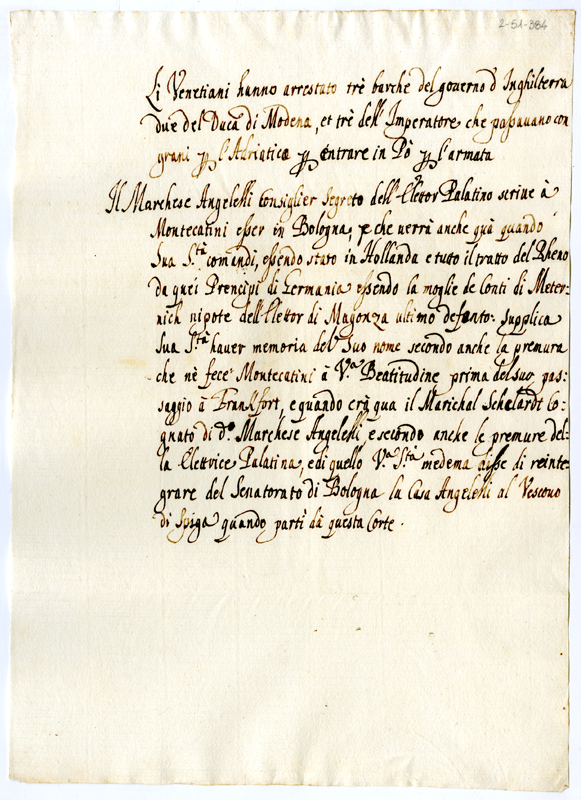 2-51-384
Li Venetiani hanno arrestato trè barche del governo d'Inghilterra
due del Duca di Modena, et trè dell'Imperatore che passavano con
grani p l'Adriatico p entrare in Pò p l'armata
Il Marchese Angelelli Consiglier segreto dell'Elettor Palatino scrive à
Montecatini esser in Bologna, e che verrà anche quà quando
Sua S.tà comandi, essendo stato in Hollanda e tutto il tratto del Rheno
da quei Prencipi di Germania essendo la moglie de Conti di Meter=
nich nipote dell'Elettor di Magonza ultimo defonto: supplica
Sua S.tà haver memoria del Suo nome secondo anche la premura
che nè fece Montecatini à V.a Beatitudine prima del suo pas=
saggio à Frankfort, e quando erà qua il Marichal Schelardt Co=
gnato di d.o Marchese Angelelli, e secondo anche le premure del=
la Elettrice Palatina, e di quello V.a S.tà medema disse di reinte=
grare del Senatorato di Bologna la Casa Angelelli al Vescovo
di Spiga quando partì dà questa Corte.